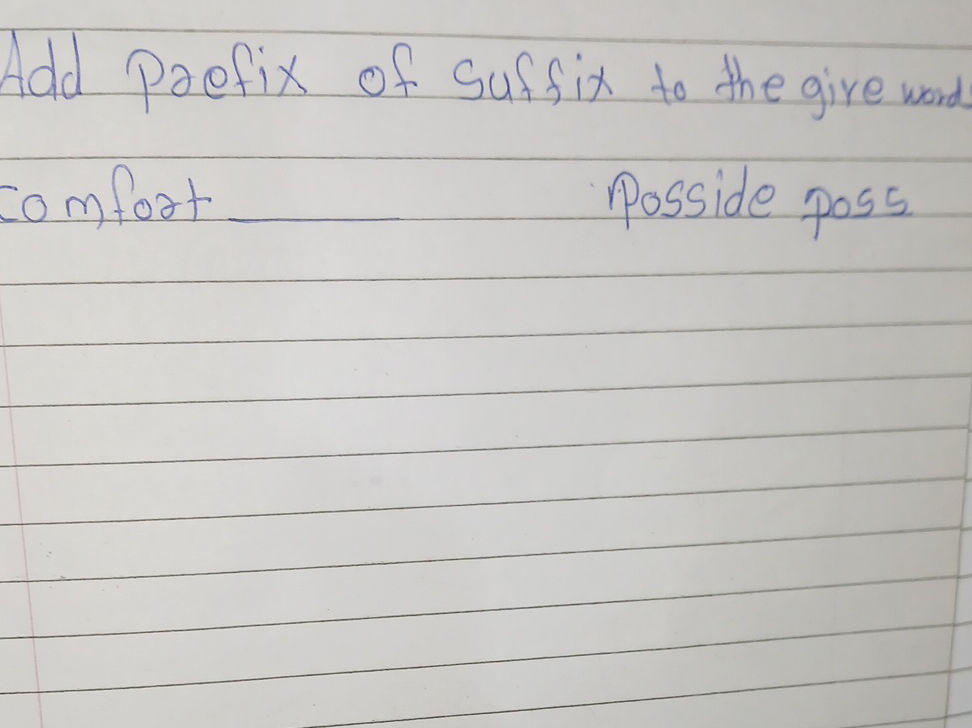 Add Prefix of Suffix to the give words
comfort ________ Posside poss